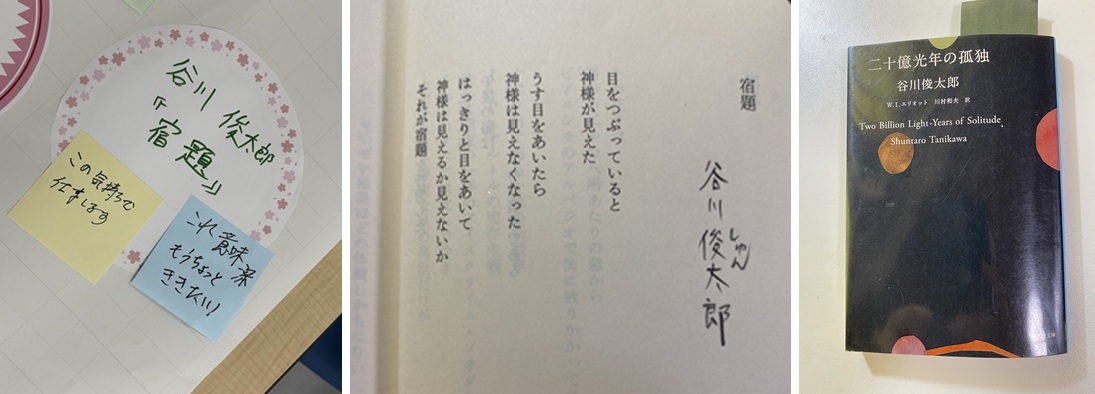 谷川 俊太郎
『宿題』
この気持ちで
仕事します
これ意味深
もうちょっと
ききたい！
宿題
谷川俊太郎
しゅん
目をつぶっていると
神様が見えた
うす目をあいたら
神様は見えなくなった
はっきりと目をあいて
神様は見えるか見えないか
それが宿題
二十億光年の孤独
谷川俊太郎
W.I.エリオット 川村和夫 訳
Two Billion Light-Years of Solitude
Shuntaro Tanikawa